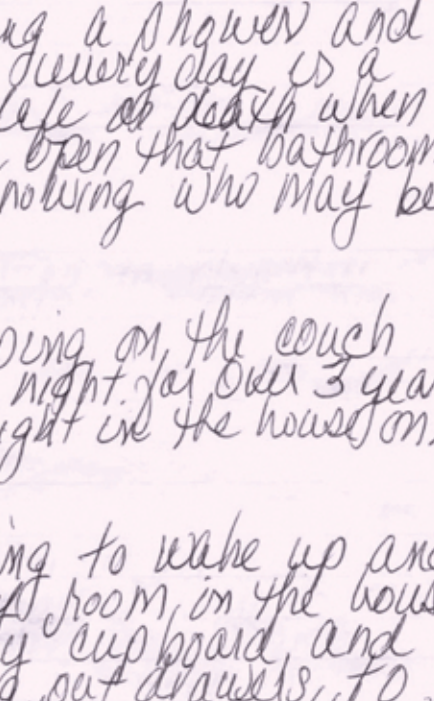 ng a shower and
every day is a
life or death when
open that bathroom
nowing who may be
ping on the couch
night for over 3 year
ight in the house on.
ing to wake up and
room in the hous
y cupboard and
out drawers, to